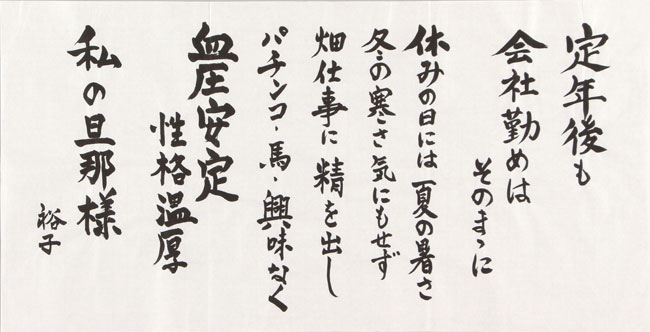 定年後も
会社勤めは
そのまゝに
休みの日には夏の暑さ
冬の寒さ気にもせず
畑仕事に精を出し
パチンコ・馬・興味なく
血圧安定
性格温厚
私の旦那様
裕子